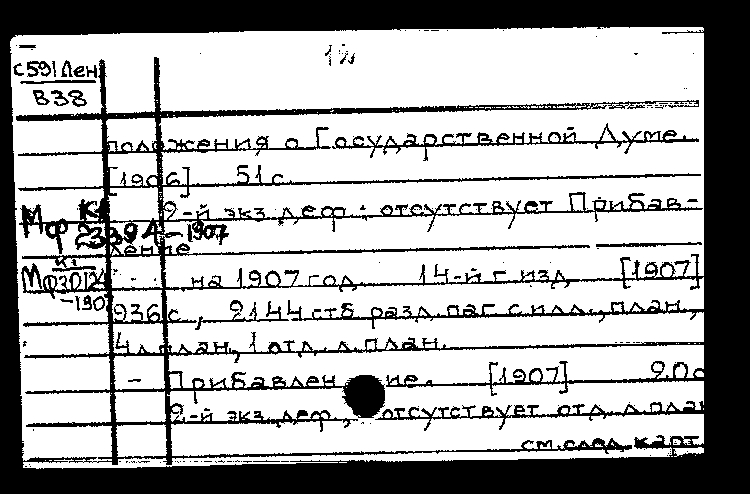 12
с591Лен
В38
положения о Государственной Думе.
[1906] 51 с.
2-й экз. деф.: отсутствует Прибав-
ление
Мф К1
2339
-1907
- на 1907 год 14-й г. изд. [1907]
К1
Мф3012
-190
936 с., 2144 стб. разд. паг. с илл., план.,
4 л. план., 1 отд. л. план.
- Прибавление. [1907]
2-й экз. деф., отсутствует отд. л. план
см. след. карт.